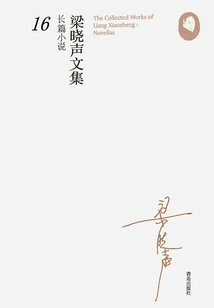 The Collected Works of
Liang Xiaosheng :
Novellas
16
长篇小说
梁晓声文集
梁晓声
青岛出版社